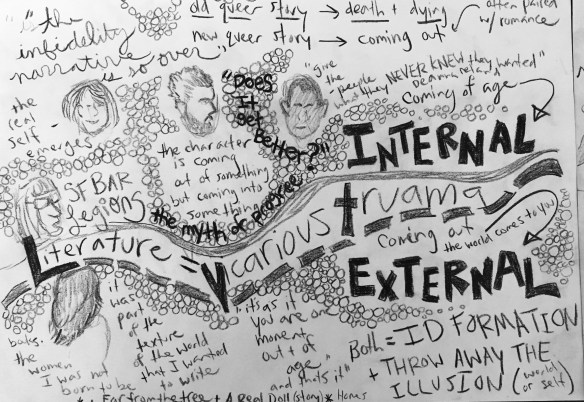 "the
infidelity
narrative
is so over"
old queer story → death + dying
new queer story → coming out
often paired
w/ romance
"Does
It get
better?"
"give
the people
what they NEVER KNEW they wanted"
Coming of age
the
real
self
emerges
the character
is coming
out of something
but coming into
something
INTERNAL
SF BAR
Legions
the myth of progress
Literature = Vicarious truama
Coming out
the world comes to you
EXTERNAL
the
women
I was not
born to be
it
was
part
of the
texture
of the world
that I wanted
to write
it's as if
you are one
moment
out + of
age
and that's it"
Both = ID FORMATION
+ THROW AWAY THE
ILLUSION (world
or self)
* Far from the tree + A Real Doll (story) * Homes